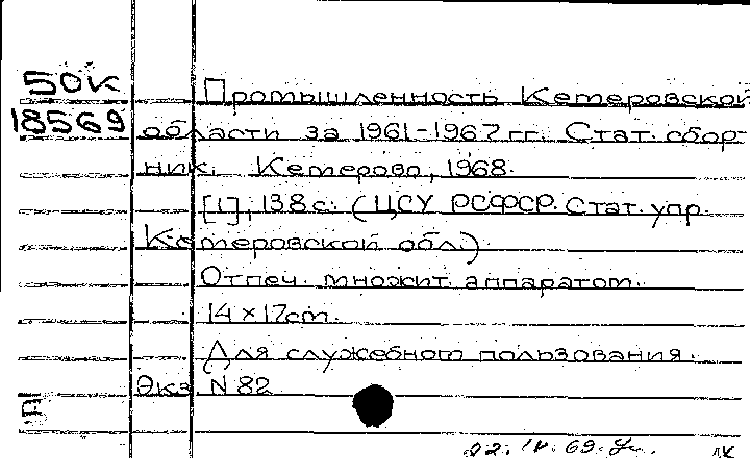 50к Промышленность Кемеровской
18569 области за 1961-1967 гг. Стат. сбор-
ник. Кемерово, 1968.
[1], 138 с. (ЦСУ РСФСР. Стат. упр.
Кемеровской обл.)
Отпеч. множит. аппаратом.
14 × 17 cm.
Для служебного пользования.
Экз. N 82